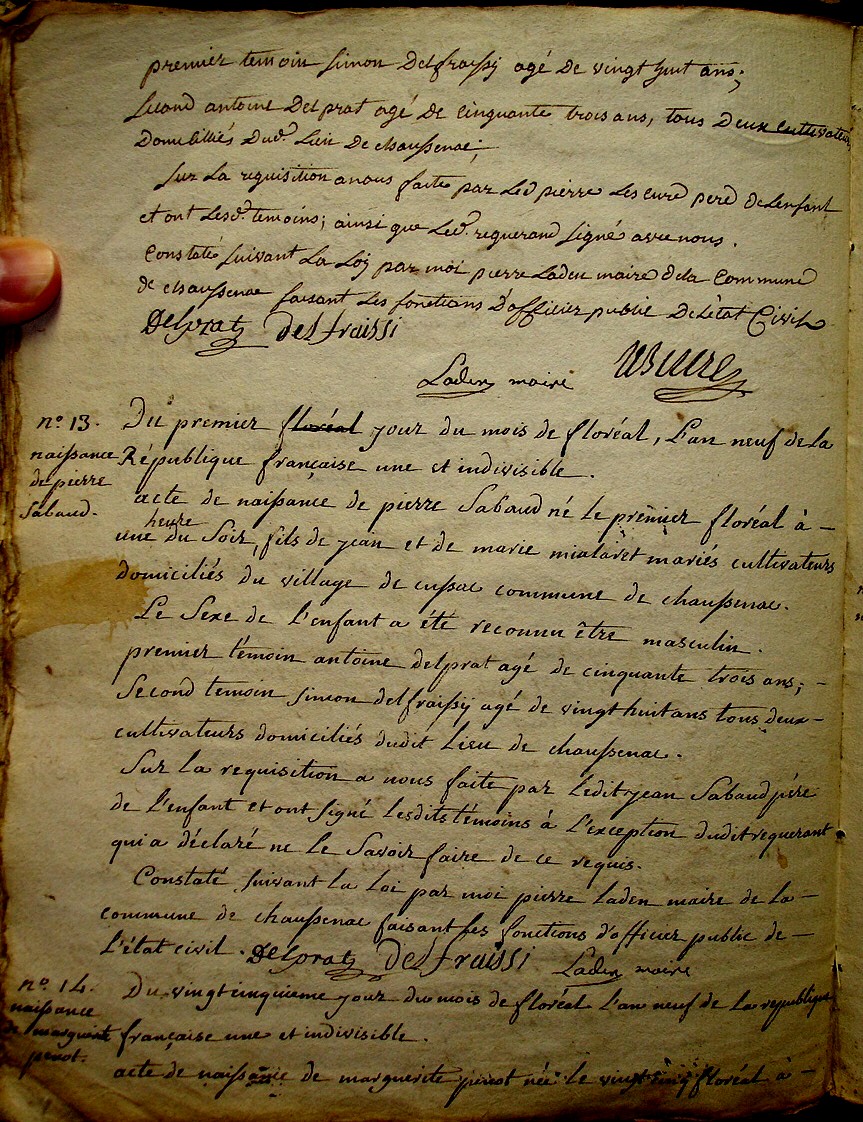 premier temoin simon Delfraissÿ agé de vingt huit ans;
second antoine Delprat agé de cinquante trois ans, tous Deux cultivateurs
Domicilliés Dud. Lieu De chaussenac;
Sur La requisition a nous faite par Led pierre Les cure pere de Lenfant
et ont Lesd. temoins; ainsi que Led. requerand signé avec nous.
Constaté suivant La Loy par moi pierre Laden maire de la Commune
de chaussenac faisant Les fonctions D'officier public De L'état Civil
Delprat delfraissi
Laden maire
n.o 13.
naissance
de pierre
Sabaud.
Du premier floréal jour du mois de floréal, L'an neuf de la
République française une et indivisible.
acte de naissance de pierre Sabaud né le premier floréal à -
heure
une du Soir, fils de jean et de marie mialaret mariés cultivateurs
domiciliés du village de cussac commune de chaussenac.
Le Sexe de L'enfant a été reconnu être masculin.
premier témoin antoine delprat agé de cinquante trois ans; -
Second temoin simon delfraissÿ agé de vingt huit ans tous deux -
cultivateurs domiciliés dudit Lieu de chaussenac.
Sur La requisition a nous faite par Ledit jean Sabaud père
de L'enfant et ont signé Lesdits témoins à L'exception dudit requerant
qui a déclaré ne le Savoir faire de ce requis.
Constaté suivant La Loi par moi pierre Laden maire de La -
commune de chaussenac faisant les fonctions d'officier public de -
L'état civil. Delprat delfraissi Laden maire
n.o 14.
naissance
de marguerite
penot.
Du vingt cinquieme jour du mois de floréal L'an neuf de La republique
française une et indivisible.
acte de naissance de marguerite penot née le vingt cinq floréal à -